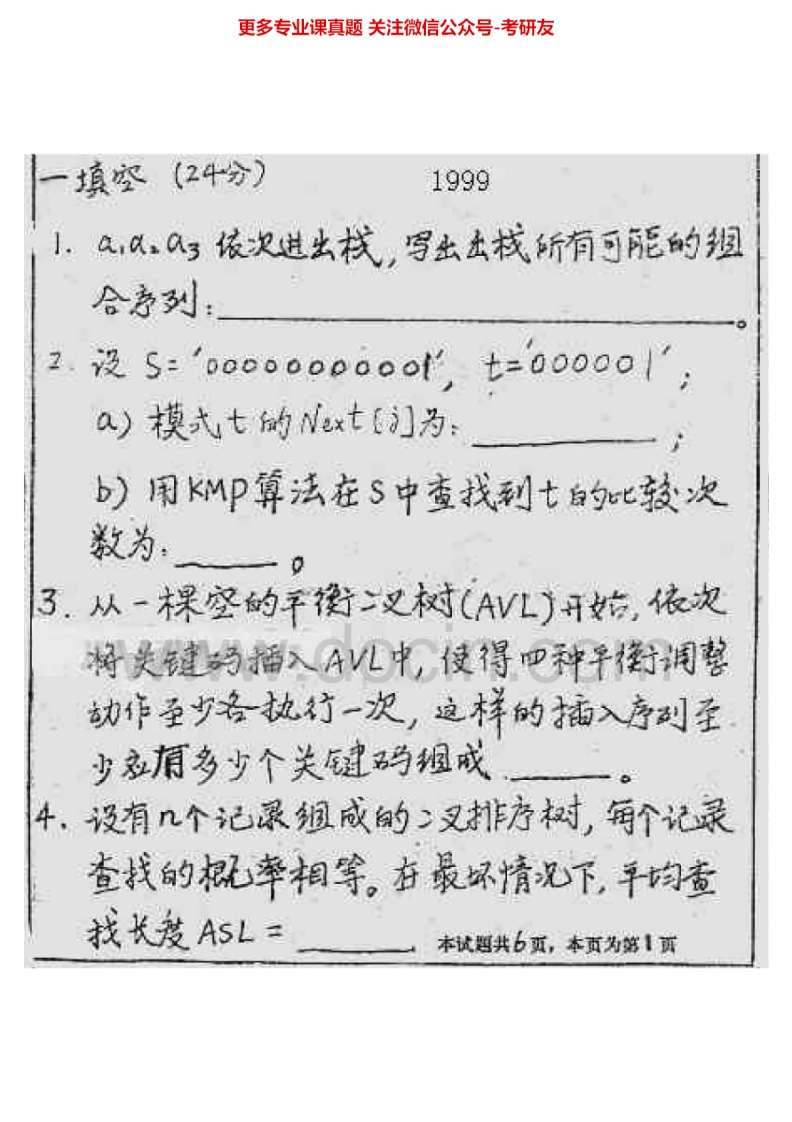 更多专业课真题 关注微信公众号-考研友
一 填空 (24分) 1999
1. a₁a₂a₃ 依次进出栈,写出出栈所有可能的组
合序列:__________。
2. 设 S='00000000001', t='000001';
a) 模式 t 的 Next[j]为:__________;
b) 用KMP算法在S中查找到t的比较次
数为:______。
3. 从一棵空的平衡二叉树(AVL)开始,依次
将关键码插入AVL中,使得四种平衡调整
动作至少各执行一次,这样的插入序列至
少应有多少个关键码组成______。
4. 设有n个记录组成的二叉排序树,每个记录
查找的概率相等。在最坏情况下,平均查
找长度 ASL = ______.
本试题共6页,本页为第1页
www.docin.com